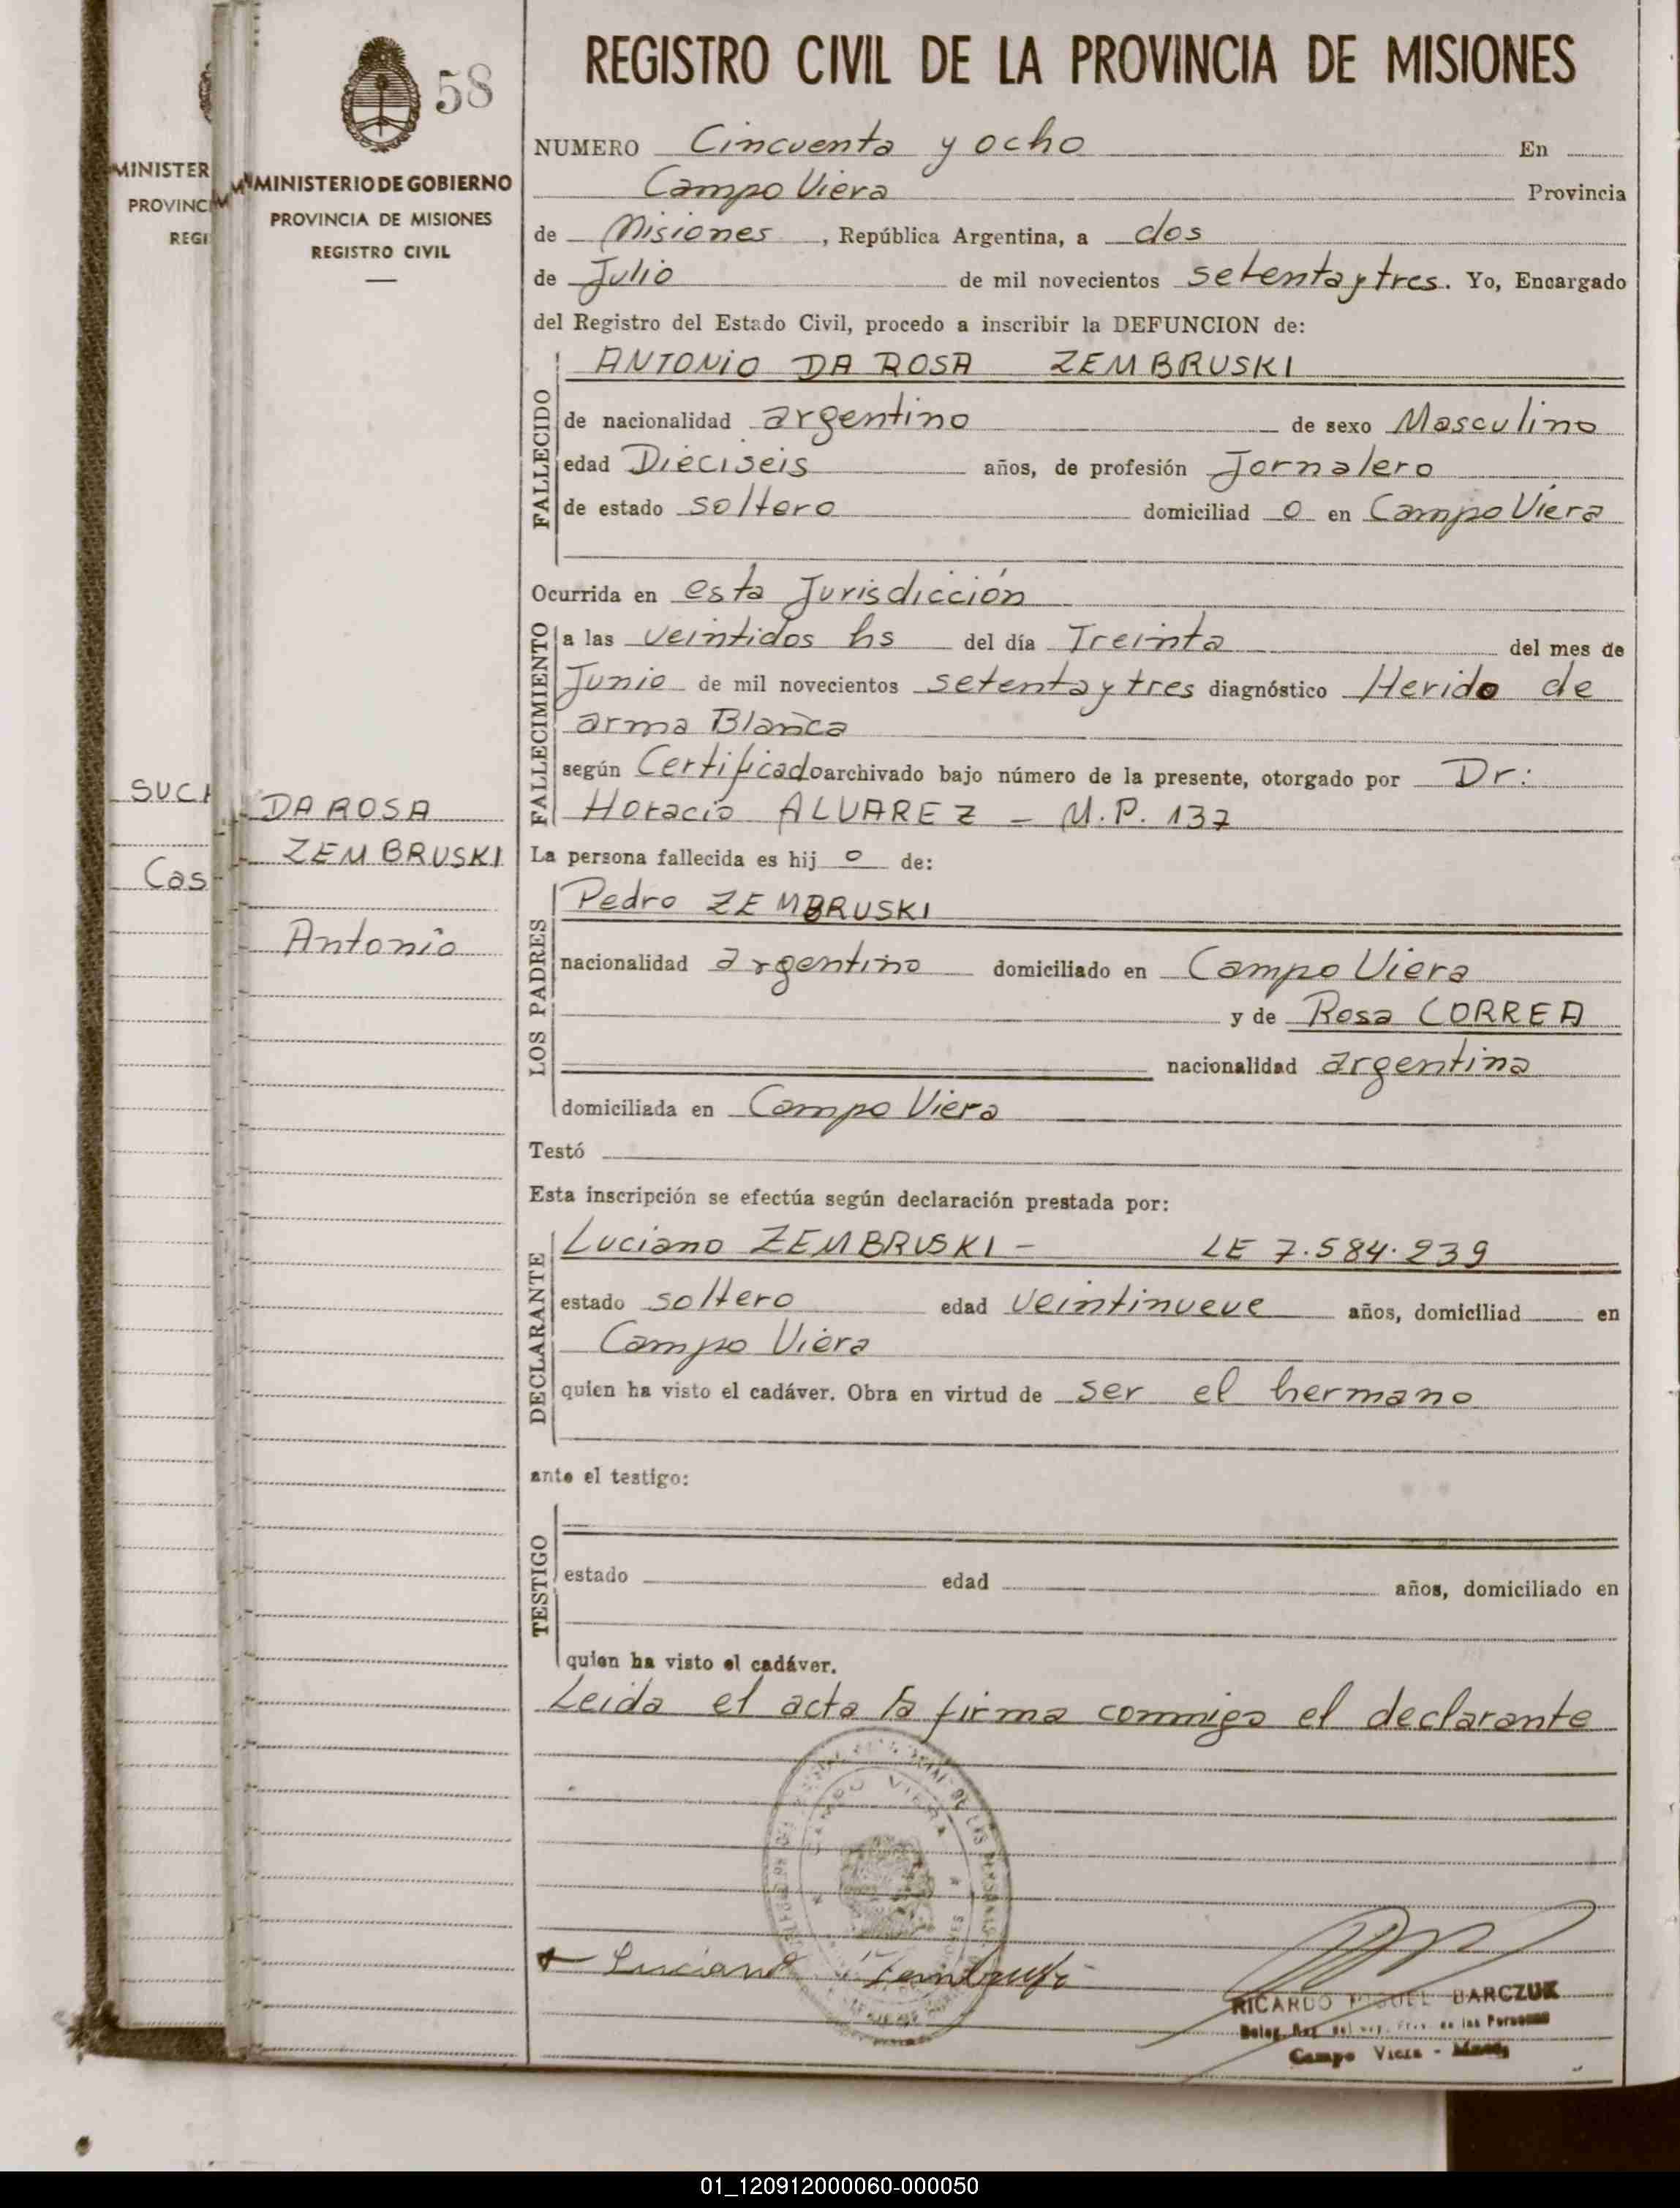 MINISTER
PROVINC
REGI
SUCH
Cas
58
MINISTERIO DE GOBIERNO
PROVINCIA DE MISIONES
REGISTRO CIVIL
DA ROSA
ZEMBRUSKI
Antonio
REGISTRO CIVIL DE LA PROVINCIA DE MISIONES
NUMERO Cincuenta y ocho En
Campo Viera Provincia
de Misiones, República Argentina, a dos
de Julio de mil novecientos setenta y tres. Yo, Encargado
del Registro del Estado Civil, procedo a inscribir la DEFUNCION de:
FALLECIDO
ANTONIO DA ROSA ZEMBRUSKI
de nacionalidad argentino de sexo Masculino
edad Dieciseis años, de profesión Jornalero
de estado soltero domiciliad o en Campo Viera
Ocurrida en esta Jurisdicción
FALLECIMIENTO
a las veintidos hs del día Treinta del mes de
Junio de mil novecientos setenta y tres diagnóstico Herida de
arma Blanca
según Certificado archivado bajo número de la presente, otorgado por Dr:
Horacio ALVAREZ - M.P. 137
La persona fallecida es hij o de:
LOS PADRES
Pedro ZEMBRUSKI
nacionalidad argentino domiciliado en Campo Viera
y de Rosa CORREA
nacionalidad argentina
domiciliada en Campo Viera
Testó
Esta inscripción se efectúa según declaración prestada por:
DECLARANTE
Luciano ZEMBRUSKI - LE 7.584.239
estado soltero edad veintinueve años, domiciliad en
Campo Viera
quien ha visto el cadáver. Obra en virtud de ser el hermano
ante el testigo:
TESTIGO
estado edad años, domiciliado en
quien ha visto el cadáver.
Leida el acta la firma conmigo el declarante
CAMPO VIERA
Luciano Zembruski
RICARDO MIGUEL BARCZUK
de las Personas
Campo Viera - Mnes.
01_120912000060-000050